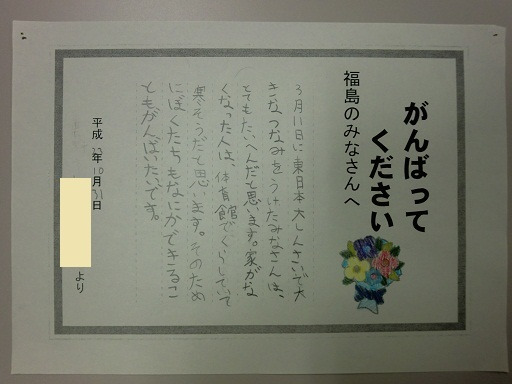 がんばって
ください
福島のみなさんへ
3月11日に東日本大しんさいで大
きなつなみをうけたみなさんは、
とてもたいへんだと思います。家がな
くなった人は、体育館でくらしていて
寒そうだと思います。そのため
にぼくたちもなにかできるこ
ともがんばりたいです。
平成23年10月31日
より